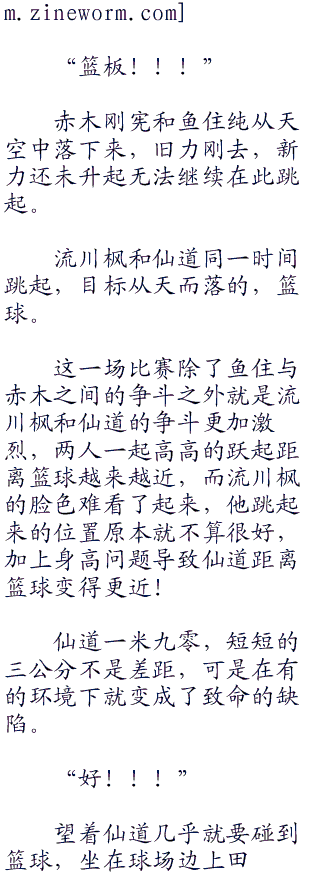 m.zineworm.com]
“篮板！！！”
赤木刚宪和鱼住纯从天
空中落下来，旧力刚去，新
力还未升起无法继续在此跳
起。
流川枫和仙道同一时间
跳起，目标从天而落的，篮
球。
这一场比赛除了鱼住与
赤木之间的争斗之外就是流
川枫和仙道的争斗更加激
烈，两人一起高高的跃起距
离篮球越来越近，而流川枫
的脸色难看了起来，他跳起
来的位置原本就不算很好，
加上身高问题导致仙道距离
篮球变得更近！
仙道一米九零，短短的
三公分不是差距，可是在有
的环境下就变成了致命的缺
陷。
“好！！！”
望着仙道几乎就要碰到
篮球，坐在球场边上田